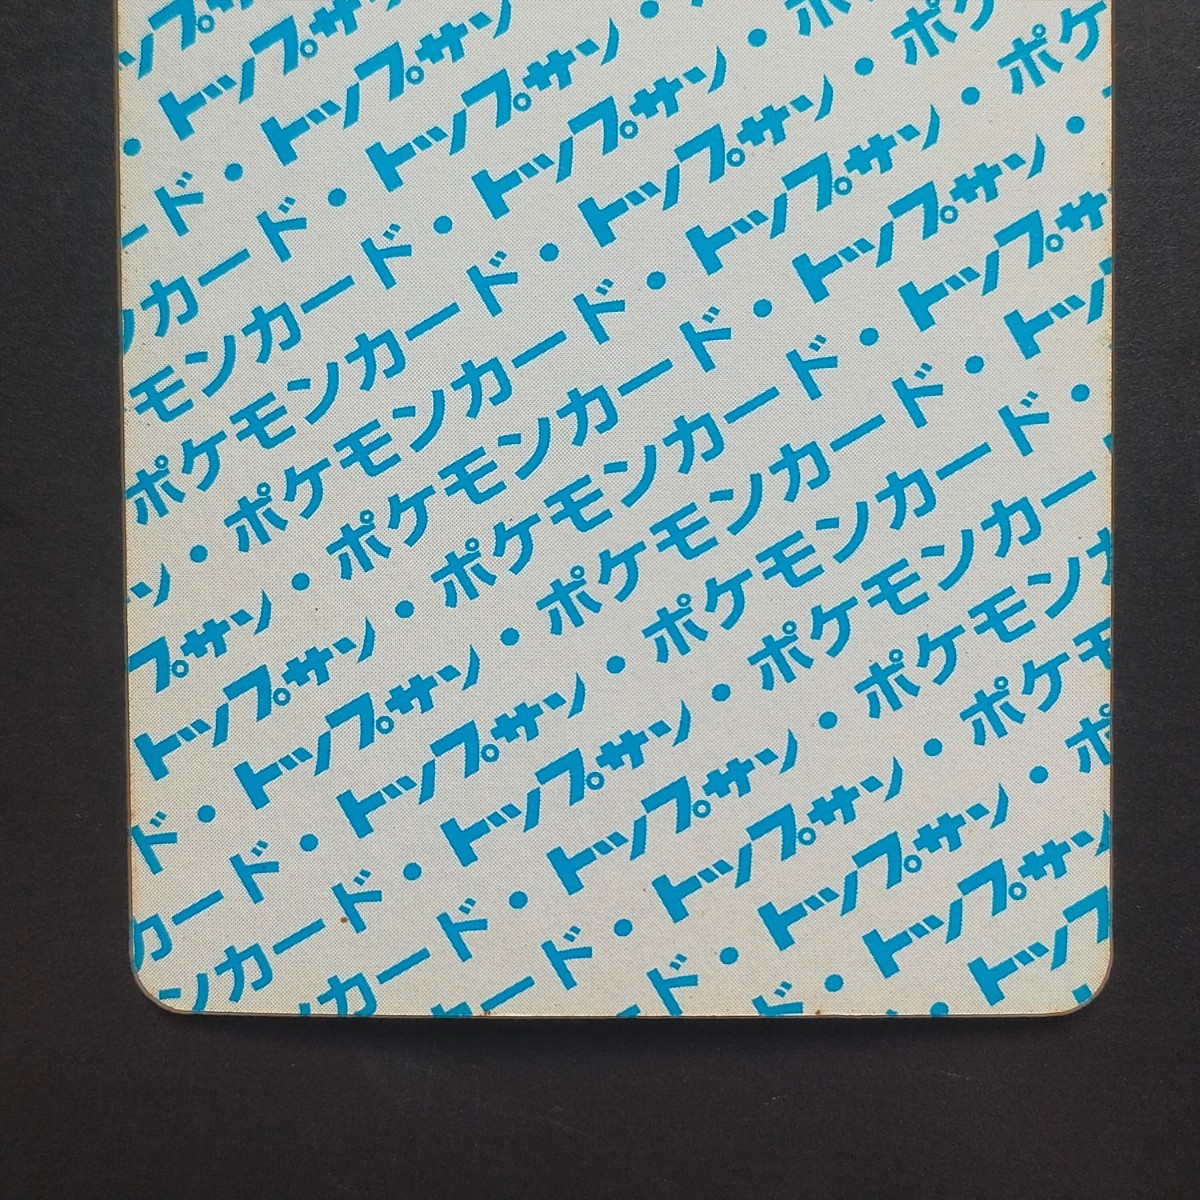 トップサン
トップサン
トップサン・ポケ
・トップサン・ポケ
ード・トップサン・ポケ
ンカード・トップサン・
モンカード・トップサン・
ポケモンカード・トップサン
・ポケモンカード・トップサン
ン・ポケモンカード・トップ
プサン・ポケモンカード・トッ
トップサン・ポケモンカード・
・トップサン・ポケモンカード
ド・トップサン・ポケモンカード
カード・トップサン・ポケモンカー
ンカード・トップサン・ポケモン
カード・トップサン・ポケモ
カード・トップサン・ポケ
ード・トップサン・ポ
ド・トップサン
・トップ